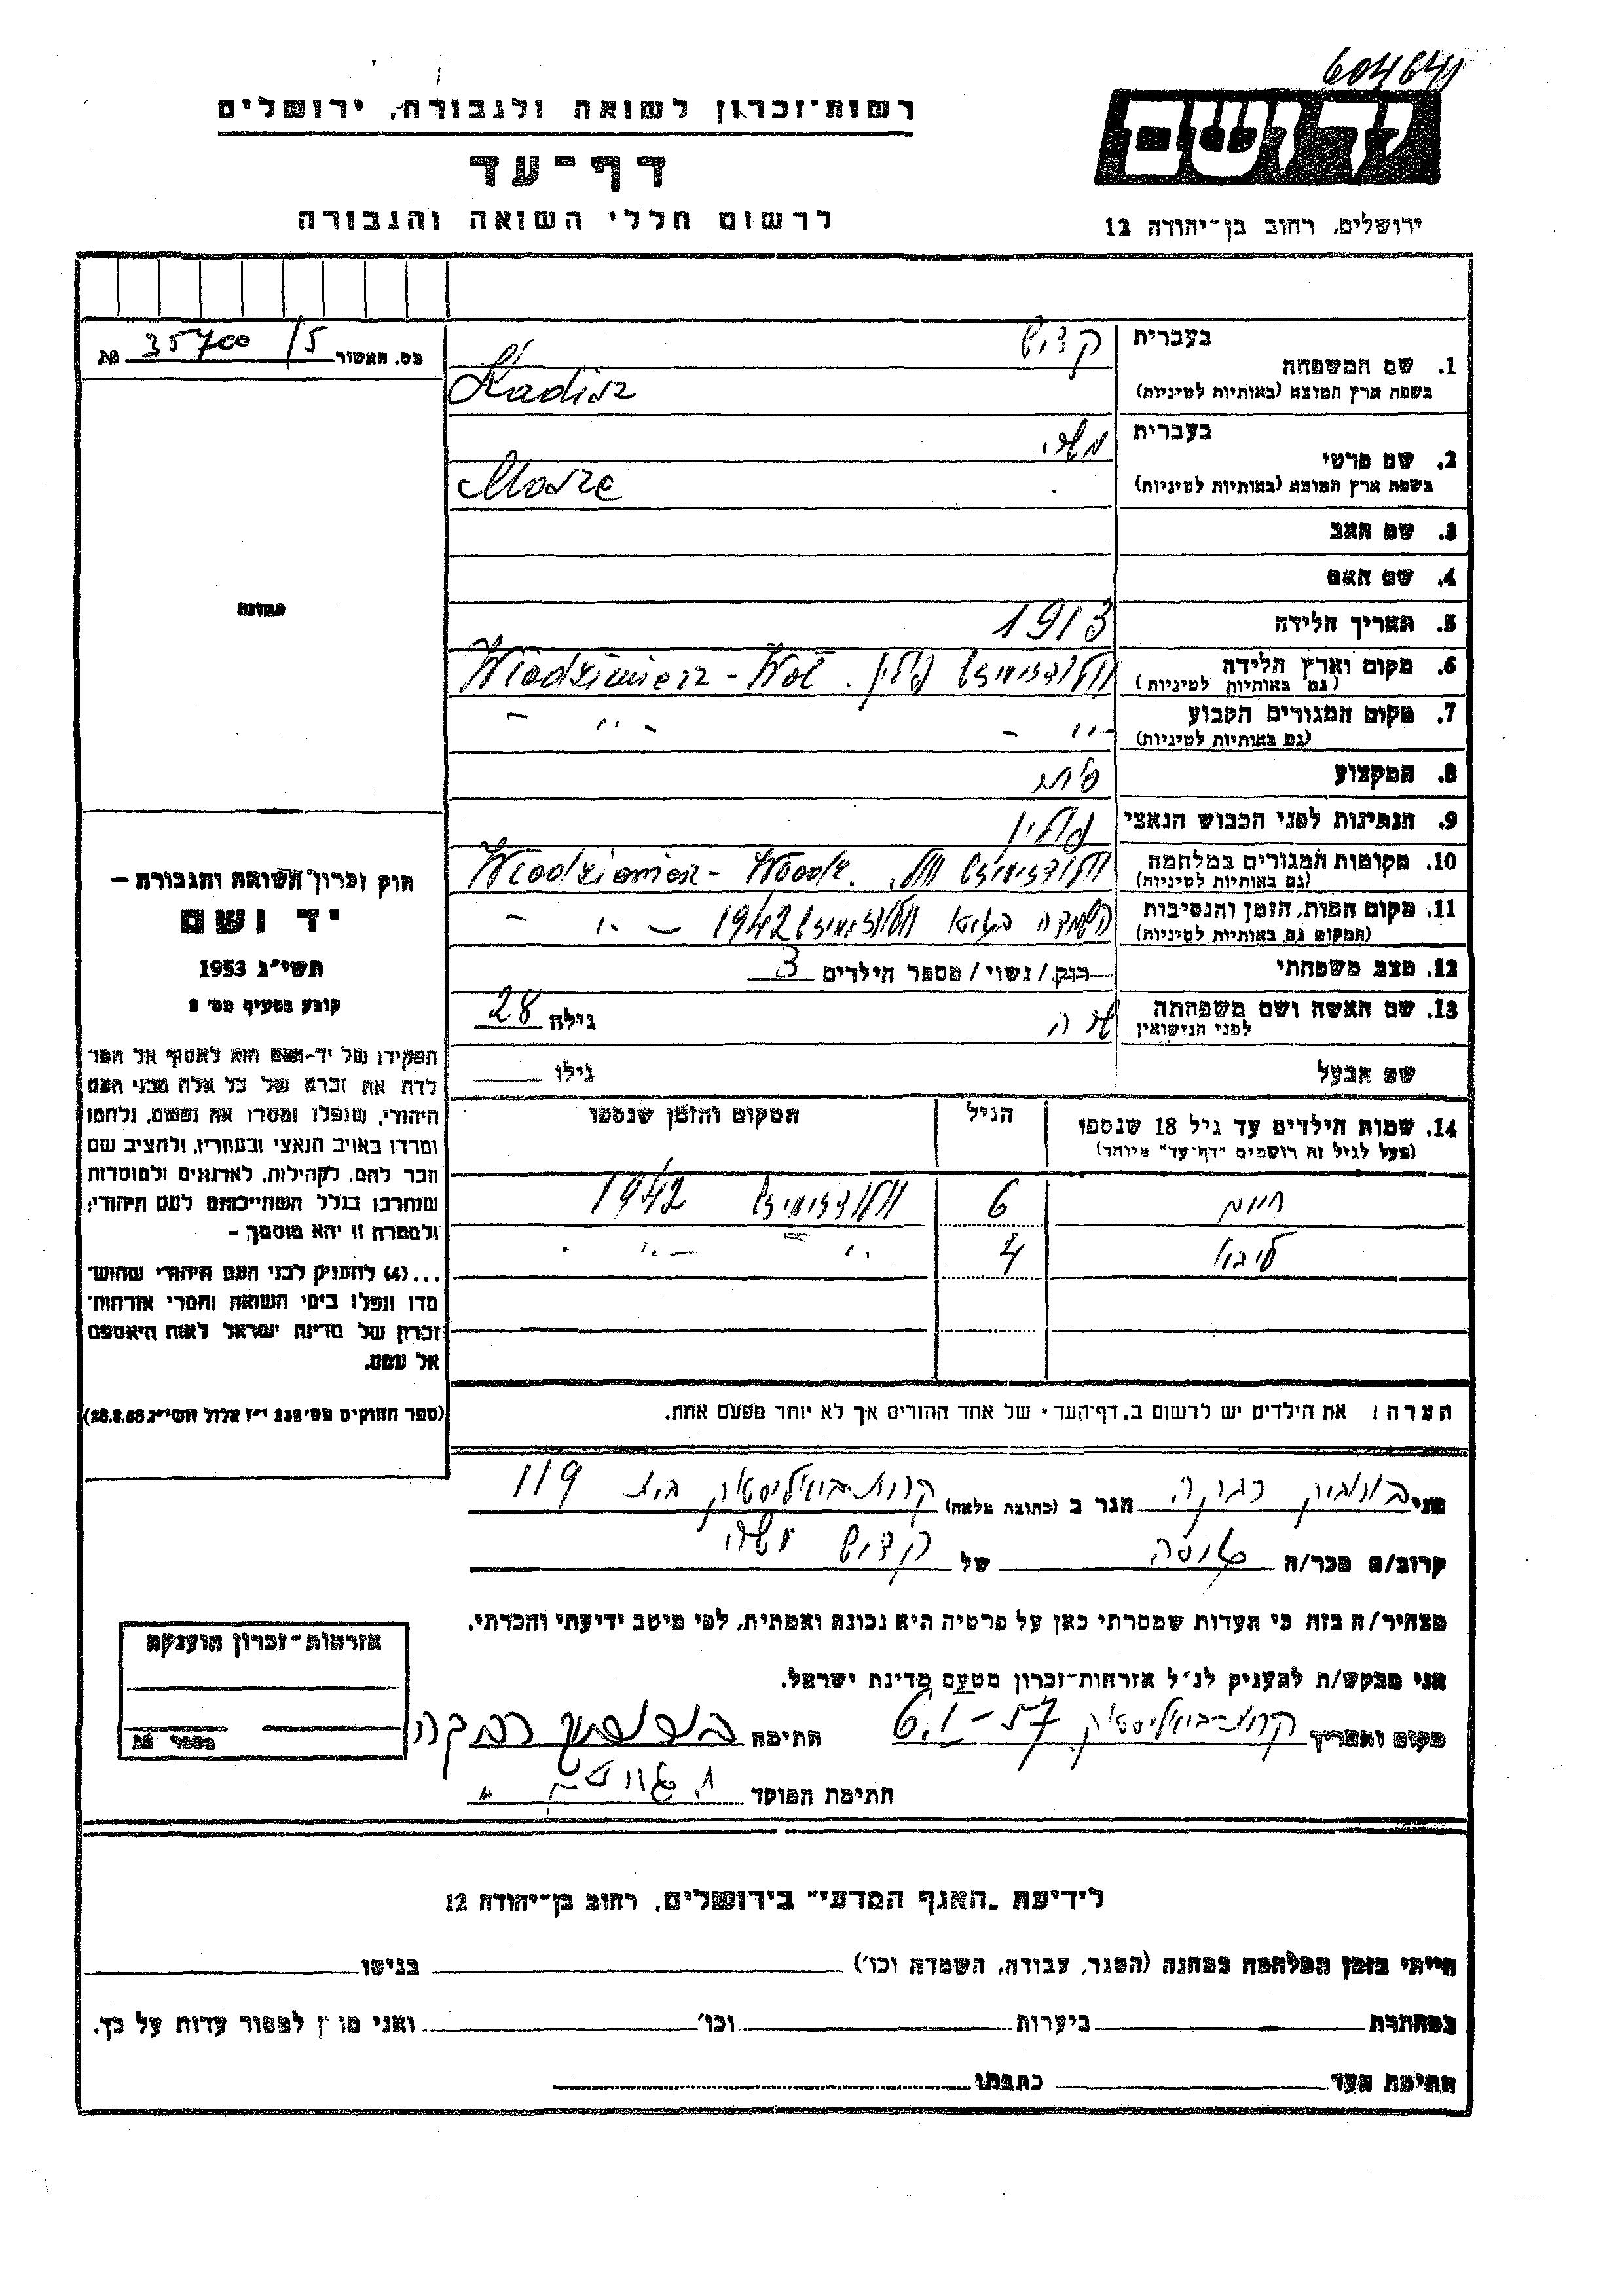 604641
יד ושם
רשות־זכרון לשואה ולגבורה, ירושלים
דף־עד
לרשום חללי השואה והגבורה
ירושלים, רחוב בן־יהודה 12
מס. האשור 35700/5 №
תמונה
בעברית קדיש
1. שם המשפחה
בשפת ארץ המוצא (באותיות לטיניות) Kadisz
בעברית משה
2. שם פרטי
בשפת ארץ המוצא (באותיות לטיניות) Mosze
3. שם האב
4. שם האם
5. תאריך הלידה 1913
6. מקום וארץ הלידה פולין. Wlodzimierz - Woł
(גם באותיות לטיניות)
7. מקום המגורים הקבוע - " - - " -
(גם באותיות לטיניות)
8. המקצוע
9. הנתינות לפני הכבוש הנאצי פולין
10. מקומות המגורים במלחמה Wlodzimierz -
(גם באותיות לטיניות)
11. מקום המות, הזמן והנסיבות 1942 - " -
(המקום גם באותיות לטיניות)
12. מצב משפחתי רוק/נשוי/מספר הילדים 3
13. שם האשה ושם משפחתה שרה גילה 28
לפני הנישואין
שם הבעל גילו
14. שמות הילדים עד גיל 18 שנספו הגיל המקום והזמן שנספו
(מעל לגיל זה רושמים "דף־עד" מיוחד)
חיים 6 1942
ליבא 4 - " - - " -
הערה: את הילדים יש לרשום ב„דף־העד" של אחד ההורים אך לא יותר מפעם אחת.
חוק זכרון השואה והגבורה —
יד ושם
תשי"ג 1953
קובע בסעיף מס' 2
תפקידו של יד־ושם הוא לאסוף אל המו
לדת את זכרם של כל אלה מבני העם
היהודי, שנפלו ומסרו את נפשם, נלחמו
ומרדו באויב הנאצי ובעוזריו, ולהציב שם
וזכר להם, לקהילות, לארגונים ולמוסדות
שנחרבו בגלל השתייכותם לעם היהודי;
ולמטרה זו יהא מוסמך —
...(4) להעניק לבני העם היהודי שהושמ
מדו ונפלו בימי השואה והמרי אזרחות־
זכרון של מדינת ישראל לאות היאספם
אל עמם.
(ספר החוקים מס' 132 י"ז אלול תשי"ג 28.8.53)
אני רבקה הגר ב (כתובת מלאה) קרית־ביאליסטוק בית 119
קרוב/ה מכר/ה של קדיש משה
מצהיר/ה בזה כי העדות שמסרתי כאן על פרטיה היא נכונה ואמתית, לפי מיטב ידיעתי והכרתי.
אני מבקש/ת להעניק לנ"ל אזרחות־זכרון מטעם מדינת ישראל.
מקום ותאריך קרית־ביאליסטוק 6.I-57 חתימה רבקה
חתימת הפוקד
אזרחות־זכרון הוענקה
מספר №
לידיעת „האגף המדעי" בירושלים, רחוב בן־יהודה 12
הייתי בזמן המלחמה במחנה (הסגר, עבודה, השמדה וכו') בגיטו
במחתרת ביערות וכו' ואני מוכן למסור עדות על כך.
חתימת העד כתבתו